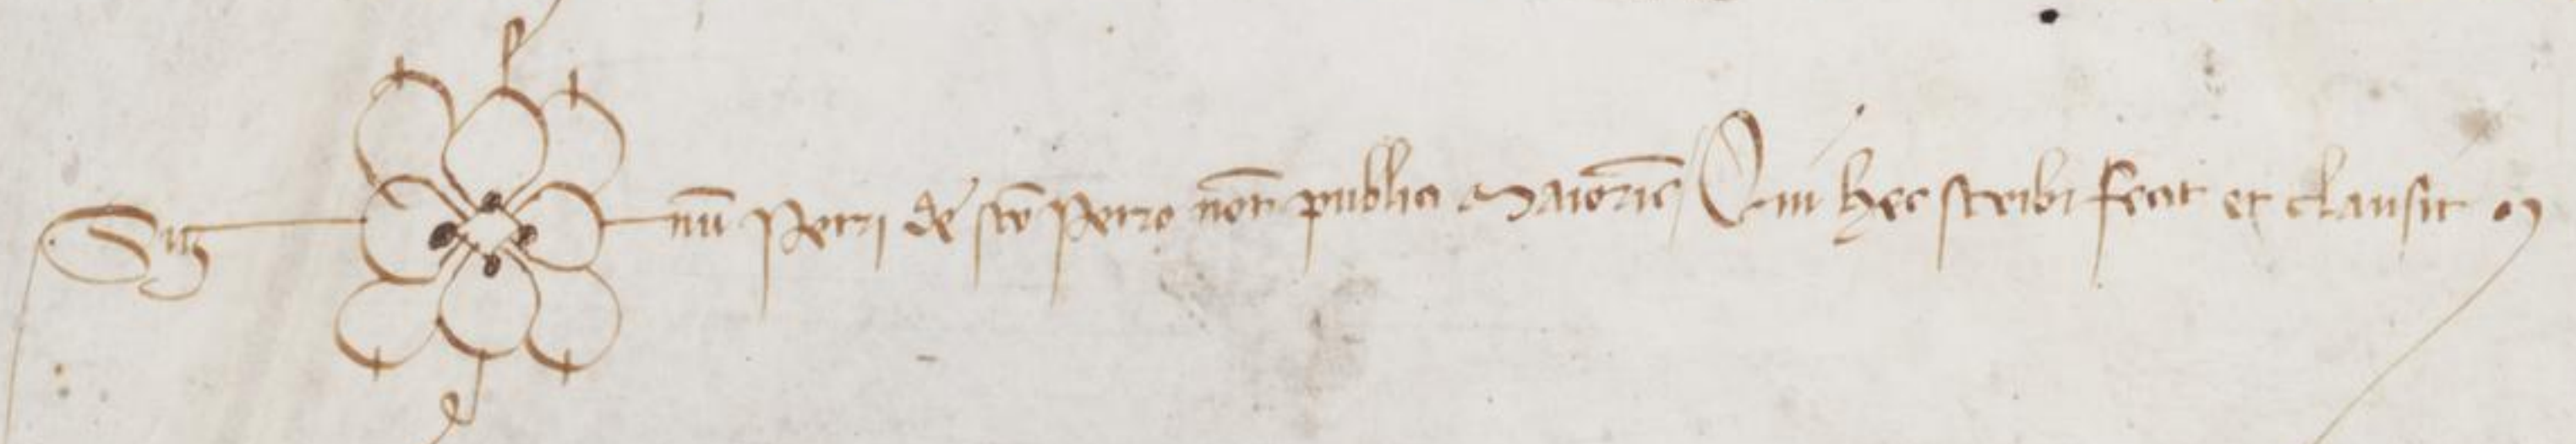 Sig nu̅ Petri de sco̅ Petro not̅ publici Maioric̅ Qui hec scribi fecit et clausit